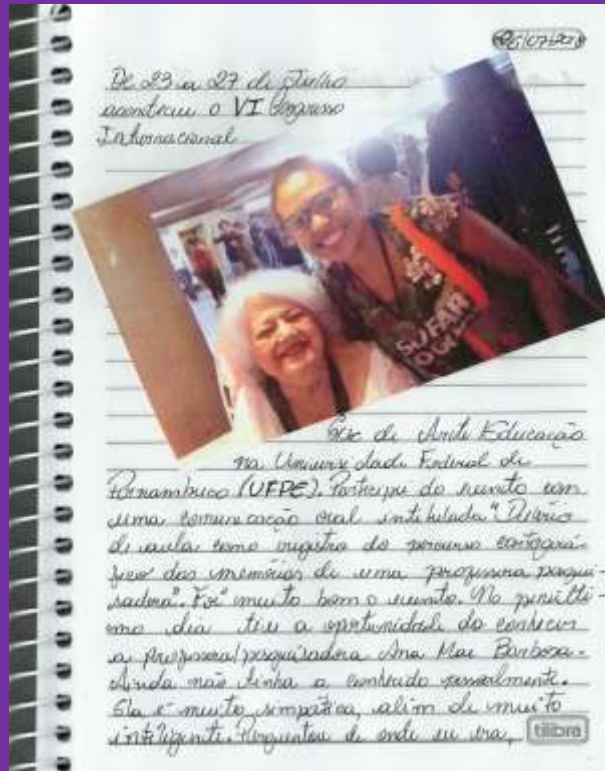 26/07/2018
De 23 a 27 de Julho
aconteceu o VI Congresso
Internacional
SOFAR
de Arte Educação
na Universidade Federal de
Pernambuco (UFPE). Participei do evento com
uma comunicação oral intitulada "Diário
de aula como registro do percurso cartográ-
fico das memórias de uma professora pesqui-
sadora". Foi muito bom o evento. No penúlti-
mo dia tive a oportunidade de conhecer
a professora/pesquisadora Ana Mae Barbosa.
Ainda não tinha a conhecido pessoalmente.
Ela é muito simpática, além de muito
inteligente. Perguntou de onde eu era,
tilibra